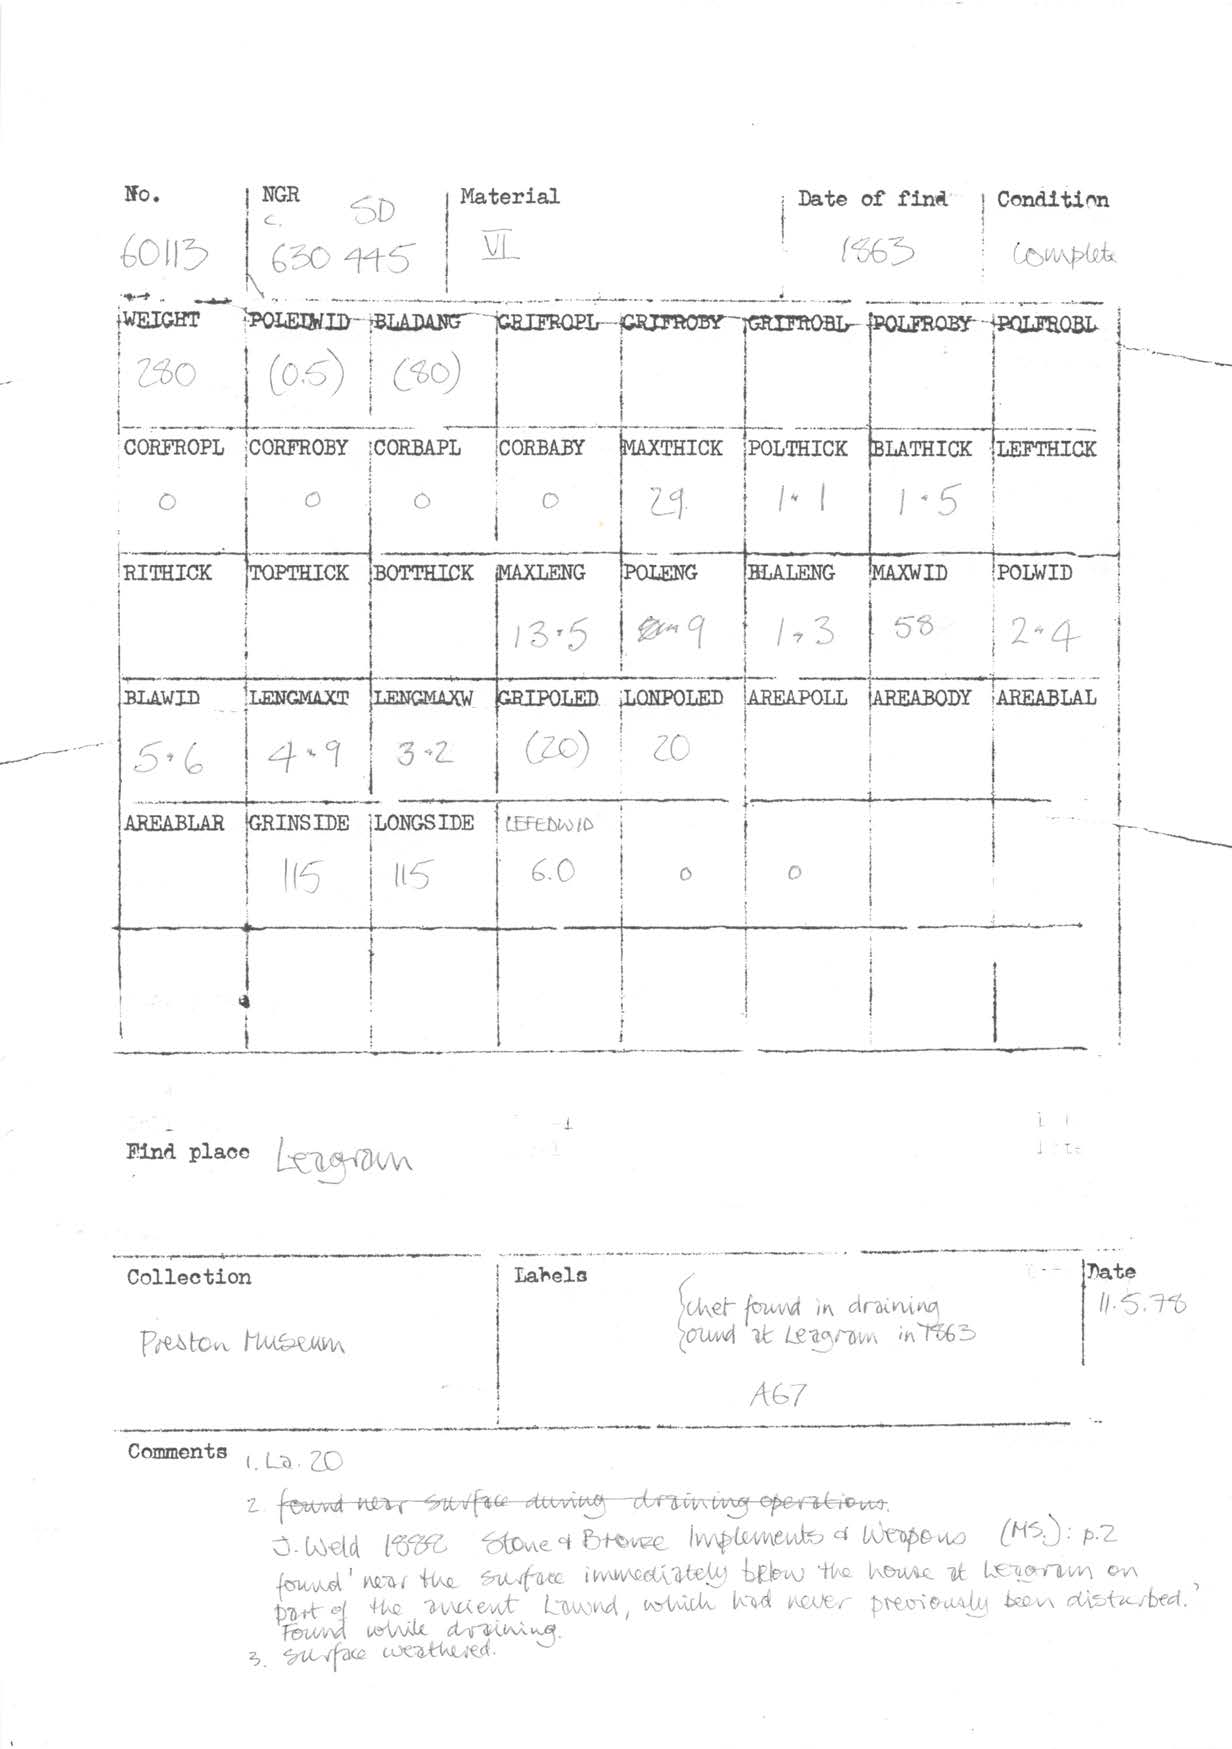 No. NGR Material Date of find Condition
c. SD
60113 630 445 VI 1863 complete
WEIGHT POLEDWID BLADANG GRIFROPL GRIFROBY GRIFROBL POLFROBY POLFROBL
280 (0.5) (80)
CORFROPL CORFROBY CORBAPL CORBABY MAXTHICK POLTHICK BLATHICK LEFTHICK
0 0 0 0 29 1.1 1.5
RITHICK TOPTHICK BOTTHICK MAXLENG POLENG BLALENG MAXWID POLWID
13.5 9 1.3 58 2.4
BLAWID LENGMAXT LENGMAXW GRIPOLED LONPOLED AREAPOLL AREABODY AREABLAL
5.6 4.9 3.2 (20) 20
AREABLAR GRINSIDE LONGSIDE LEFEDWID
115 115 6.0 0 0
Find place Leagram
Collection Labels Date
chet found in draining 11.5.78
Preston Museum ound at Leagram in 1863
A67
Comments 1. La. 20
2. found near surface during draining operations.
J. Weld 1882 Stone & Bronze Implements & Weapons (MS.): p.2
found 'near the surface immediately below the house at Leagram on
part of the ancient Lawnd, which had never previously been disturbed.'
Found while draining.
3. Surface weathered.